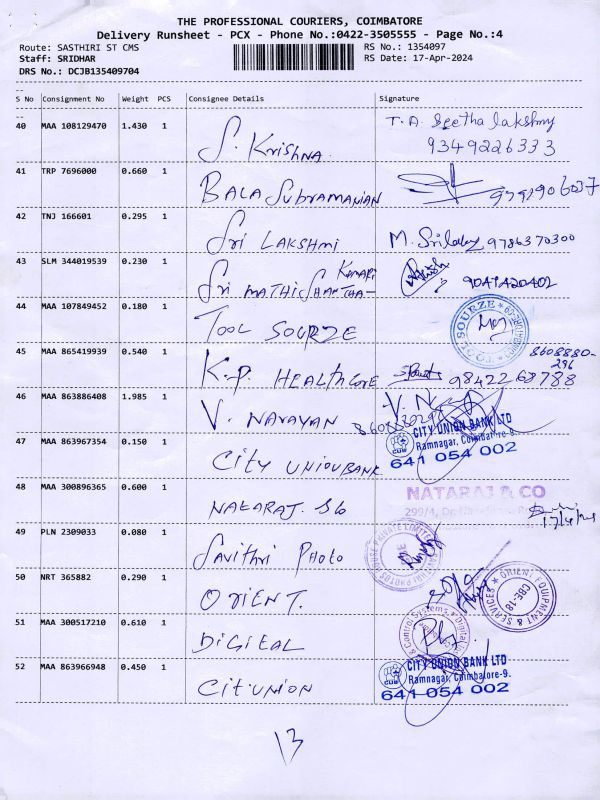 THE PROFESSIONAL COURIERS, COIMBATORE
Delivery Runsheet - PCX - Phone No.:0422-3505555 - Page No.:4
Route: SASTHIRI ST CMS
RS No.: 1354097
Staff: SRIDHAR
RS Date: 17-Apr-2024
DRS No.: DCJB135409704
S No Consignment No Weight PCS Consignee Details Signature
40 MAA 108129470 1.430 1 S. Krishna T. A. Seetha lakshmy
9349226333
41 TRP 7696000 0.660 1 BALA Subramanian
42 TNJ 166601 0.295 1 Sri LAKSHMI 9786370300
43 SLM 344019539 0.230 1 Sri MATHI SHANTHA- Kumari
44 MAA 107849452 0.180 1 TOOL SOURZE
45 MAA 865419939 0.540 1 K.P. HEALTHcare 9842268788
8608880-
296
46 MAA 863886408 1.985 1 V. NARAYAN
CITY UNION BANK LTD
Ramnagar, Coimbatore-9.
641 054 002
47 MAA 863967354 0.150 1 City UNION BANK
48 MAA 300896365 0.600 1 NATARAJ.
NATARAJ & CO
17/4/24
49 PLN 2309033 0.080 1 Savithri Photo
50 NRT 365882 0.290 1 ORIENT.
ORIENT EQUIPMENT & SERVICES
CBE-18
51 MAA 300517210 0.610 1 DIGITAL
52 MAA 863966948 0.450 1 City UNION
CITY UNION BANK LTD
Ramnagar, Coimbatore-9.
641 054 002
13